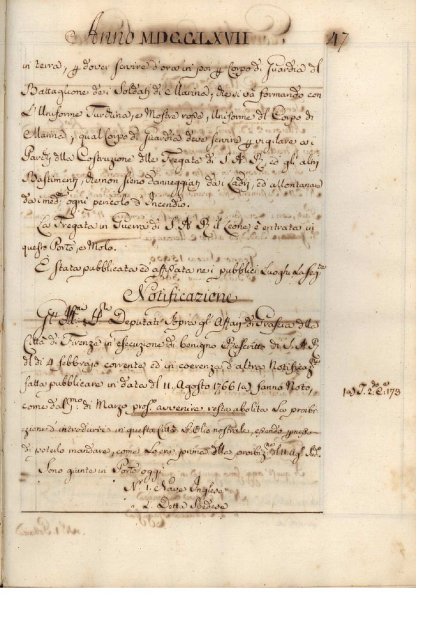 Anno MDCCLXVII 47
in terra, p dover servire d'ora in poi p Corpo di Guardia del
Battaglione dei Soldati di Marina, che si và formando con
L'Uniforme Turchina, e Mostre rosse, Uniforme del Corpo di
Marina, qual Corpo di Guardia deve servire p vigilare ai
della Costruzione delle Fregate di S. A. R., ed gl'altri
Bastimenti, che non siano danneggiati dai Ladri, ed allontanare
dai med. ogni pericolo d'Incendio.
La Fregata in Guerra di S. A. R. il Leone è entrata in
questo Porto, e Molo.
È stata pubblicata ed affissata nei pubblici Luoghi La seg.te
Notificazione
Gl' Ill.mi SS.ri Deputati Sopra gl'Affari di Grascia della
Città di Firenze in esecuzione di benigno Rescritto di S. A. R.
del dì 4 febbrajo corrente ed in coerenza d'altra Notificaz.
fatta pubblicare in data del 11. Agosto 1766 (a) fanno Noto,
come dal p.mo di Marzo pros. avvenire resta abolita La proibi-
zione d'introdurre in questa Città L'Olio nostrale,
di poterlo mandare, come Lo era prima della proibiz. del 11 Ag.
Sono giunte in Porto oggi
N.º 1. Nave Inglese
" 1. Detta Svedese
(a) 173